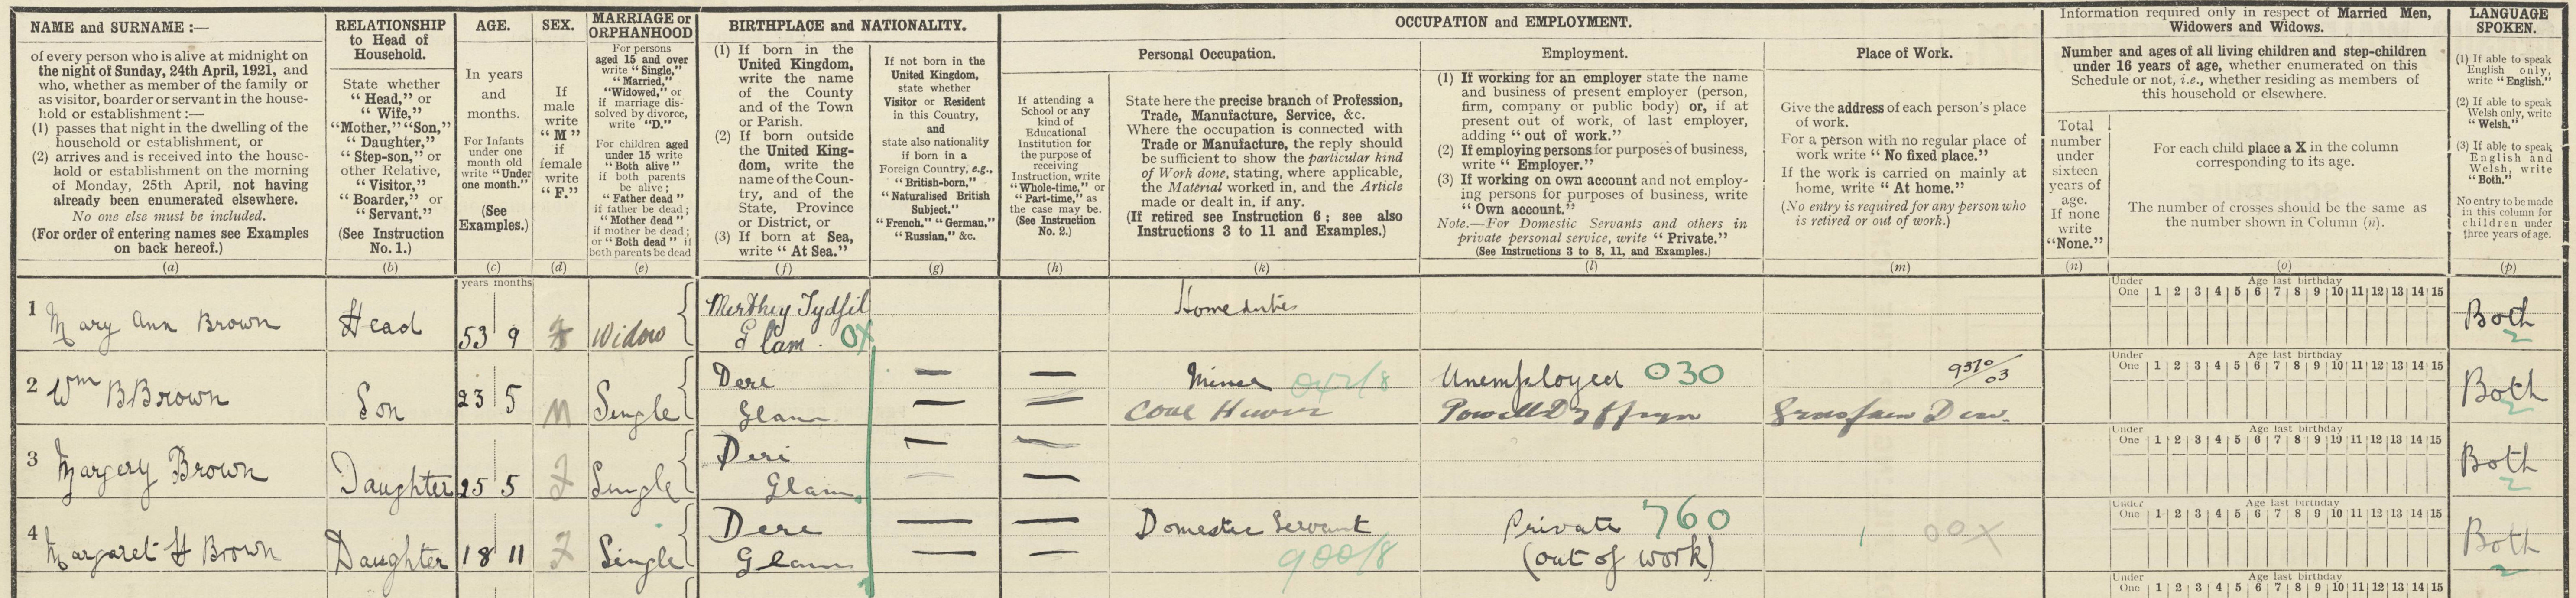 NAME and SURNAME :—
of every person who is alive at midnight on
the night of Sunday, 24th April, 1921, and
who, whether as member of the family or
as visitor, boarder or servant in the house-
hold or establishment :—
(1) passes that night in the dwelling of the
household or establishment, or
(2) arrives and is received into the house-
hold or establishment on the morning
of Monday, 25th April, not having
already been enumerated elsewhere.
No one else must be included.
(For order of entering names see Examples
on back hereof.)
(a)
RELATIONSHIP
to Head of
Household.
State whether
"Head," or
"Wife,"
"Mother," "Son,"
"Daughter,"
"Step-son," or
other Relative,
"Visitor,"
"Boarder," or
"Servant."
(See Instruction
No. 1.)
(b)
AGE.
In years
and
months.
For Infants
under one
month old
write "Under
one month."
(See
Examples.)
(c)
SEX.
If
male
write
"M"
if
female
write
"F."
(d)
MARRIAGE or
ORPHANHOOD
For persons
aged 15 and over
write "Single,"
"Married,"
"Widowed," or
if marriage dis-
solved by divorce,
write "D."
For children aged
under 15 write
"Both alive"
if both parents
be alive;
"Father dead"
if father be dead;
"Mother dead"
if mother be dead;
or "Both dead" if
both parents be dead
(e)
BIRTHPLACE and NATIONALITY.
(1) If born in the
United Kingdom,
write the name
of the County
and of the Town
or Parish.
(2) If born outside
the United King-
dom, write the
name of the Coun-
try, and of the
State, Province
or District, or
(3) If born at Sea,
write "At Sea."
(f)
If not born in the
United Kingdom,
state whether
Visitor or Resident
in this Country,
and
state also nationality
if born in a
Foreign Country, e.g.,
"British-born,"
"Naturalised British
Subject."
"French," "German,"
"Russian," &c.
(g)
OCCUPATION and EMPLOYMENT.
If attending a
School or any
kind of
Educational
Institution for
the purpose of
receiving
Instruction, write
"Whole-time," or
"Part-time," as
the case may be.
(See Instruction
No. 2.)
(h)
Personal Occupation.
State here the precise branch of Profession,
Trade, Manufacture, Service, &c.
Where the occupation is connected with
Trade or Manufacture, the reply should
be sufficient to show the particular kind
of Work done, stating, where applicable,
the Material worked in, and the Article
made or dealt in, if any.
(If retired see Instruction 6; see also
Instructions 3 to 11 and Examples.)
(k)
Employment.
(1) If working for an employer state the name
and business of present employer (person,
firm, company or public body) or, if at
present out of work, of last employer,
adding "out of work."
(2) If employing persons for purposes of business,
write "Employer."
(3) If working on own account and not employ-
ing persons for purposes of business, write
"Own account."
Note.—For Domestic Servants and others in
private personal service, write "Private."
(See Instructions 3 to 8, 11, and Examples.)
(l)
Place of Work.
Give the address of each person's place
of work.
For a person with no regular place of
work write "No fixed place."
If the work is carried on mainly at
home, write "At home."
(No entry is required for any person who
is retired or out of work.)
(m)
Information required only in respect of Married Men,
Widowers and Widows.
Number and ages of all living children and step-children
under 16 years of age, whether enumerated on this
Schedule or not, i.e., whether residing as members of
this household or elsewhere.
Total
number
under
sixteen
years of
age.
If none
write
"None."
(n)
For each child place a X in the column
corresponding to its age.
The number of crosses should be the same as
the number shown in Column (n).
(o)
LANGUAGE
SPOKEN.
(1) If able to speak
English only,
write "English."
(2) If able to speak
Welsh only, write
"Welsh."
(3) If able to speak
English and
Welsh, write
"Both."
No entry to be made
in this column for
children under
three years of age.
(p)
years months
1 Mary Ann Brown Head 53 9 F Widow Merthyr Tydfil Home duties Both
Glam. OX 2
Under One Age last birthday 1 2 3 4 5 6 7 8 9 10 11 12 13 14 15
2 Wm B Brown Son 23 5 M Single Deri — — Miner 042/8 Unemployed 030 9370/03 Both
Glam — — Coal Hewer Powell Dyffryn 2
Under One Age last birthday 1 2 3 4 5 6 7 8 9 10 11 12 13 14 15
3 Margery Brown Daughter 25 5 F Single Deri — — Both
Glam. — — 2
Under One Age last birthday 1 2 3 4 5 6 7 8 9 10 11 12 13 14 15
4 Margaret H Brown Daughter 18 11 F Single Deri — — Domestic Servant Private 760 00X Both
Glam — — 900/8 (out of work) 2
Under One Age last birthday 1 2 3 4 5 6 7 8 9 10 11 12 13 14 15
Under One Age last birthday 1 2 3 4 5 6 7 8 9 10 11 12 13 14 15